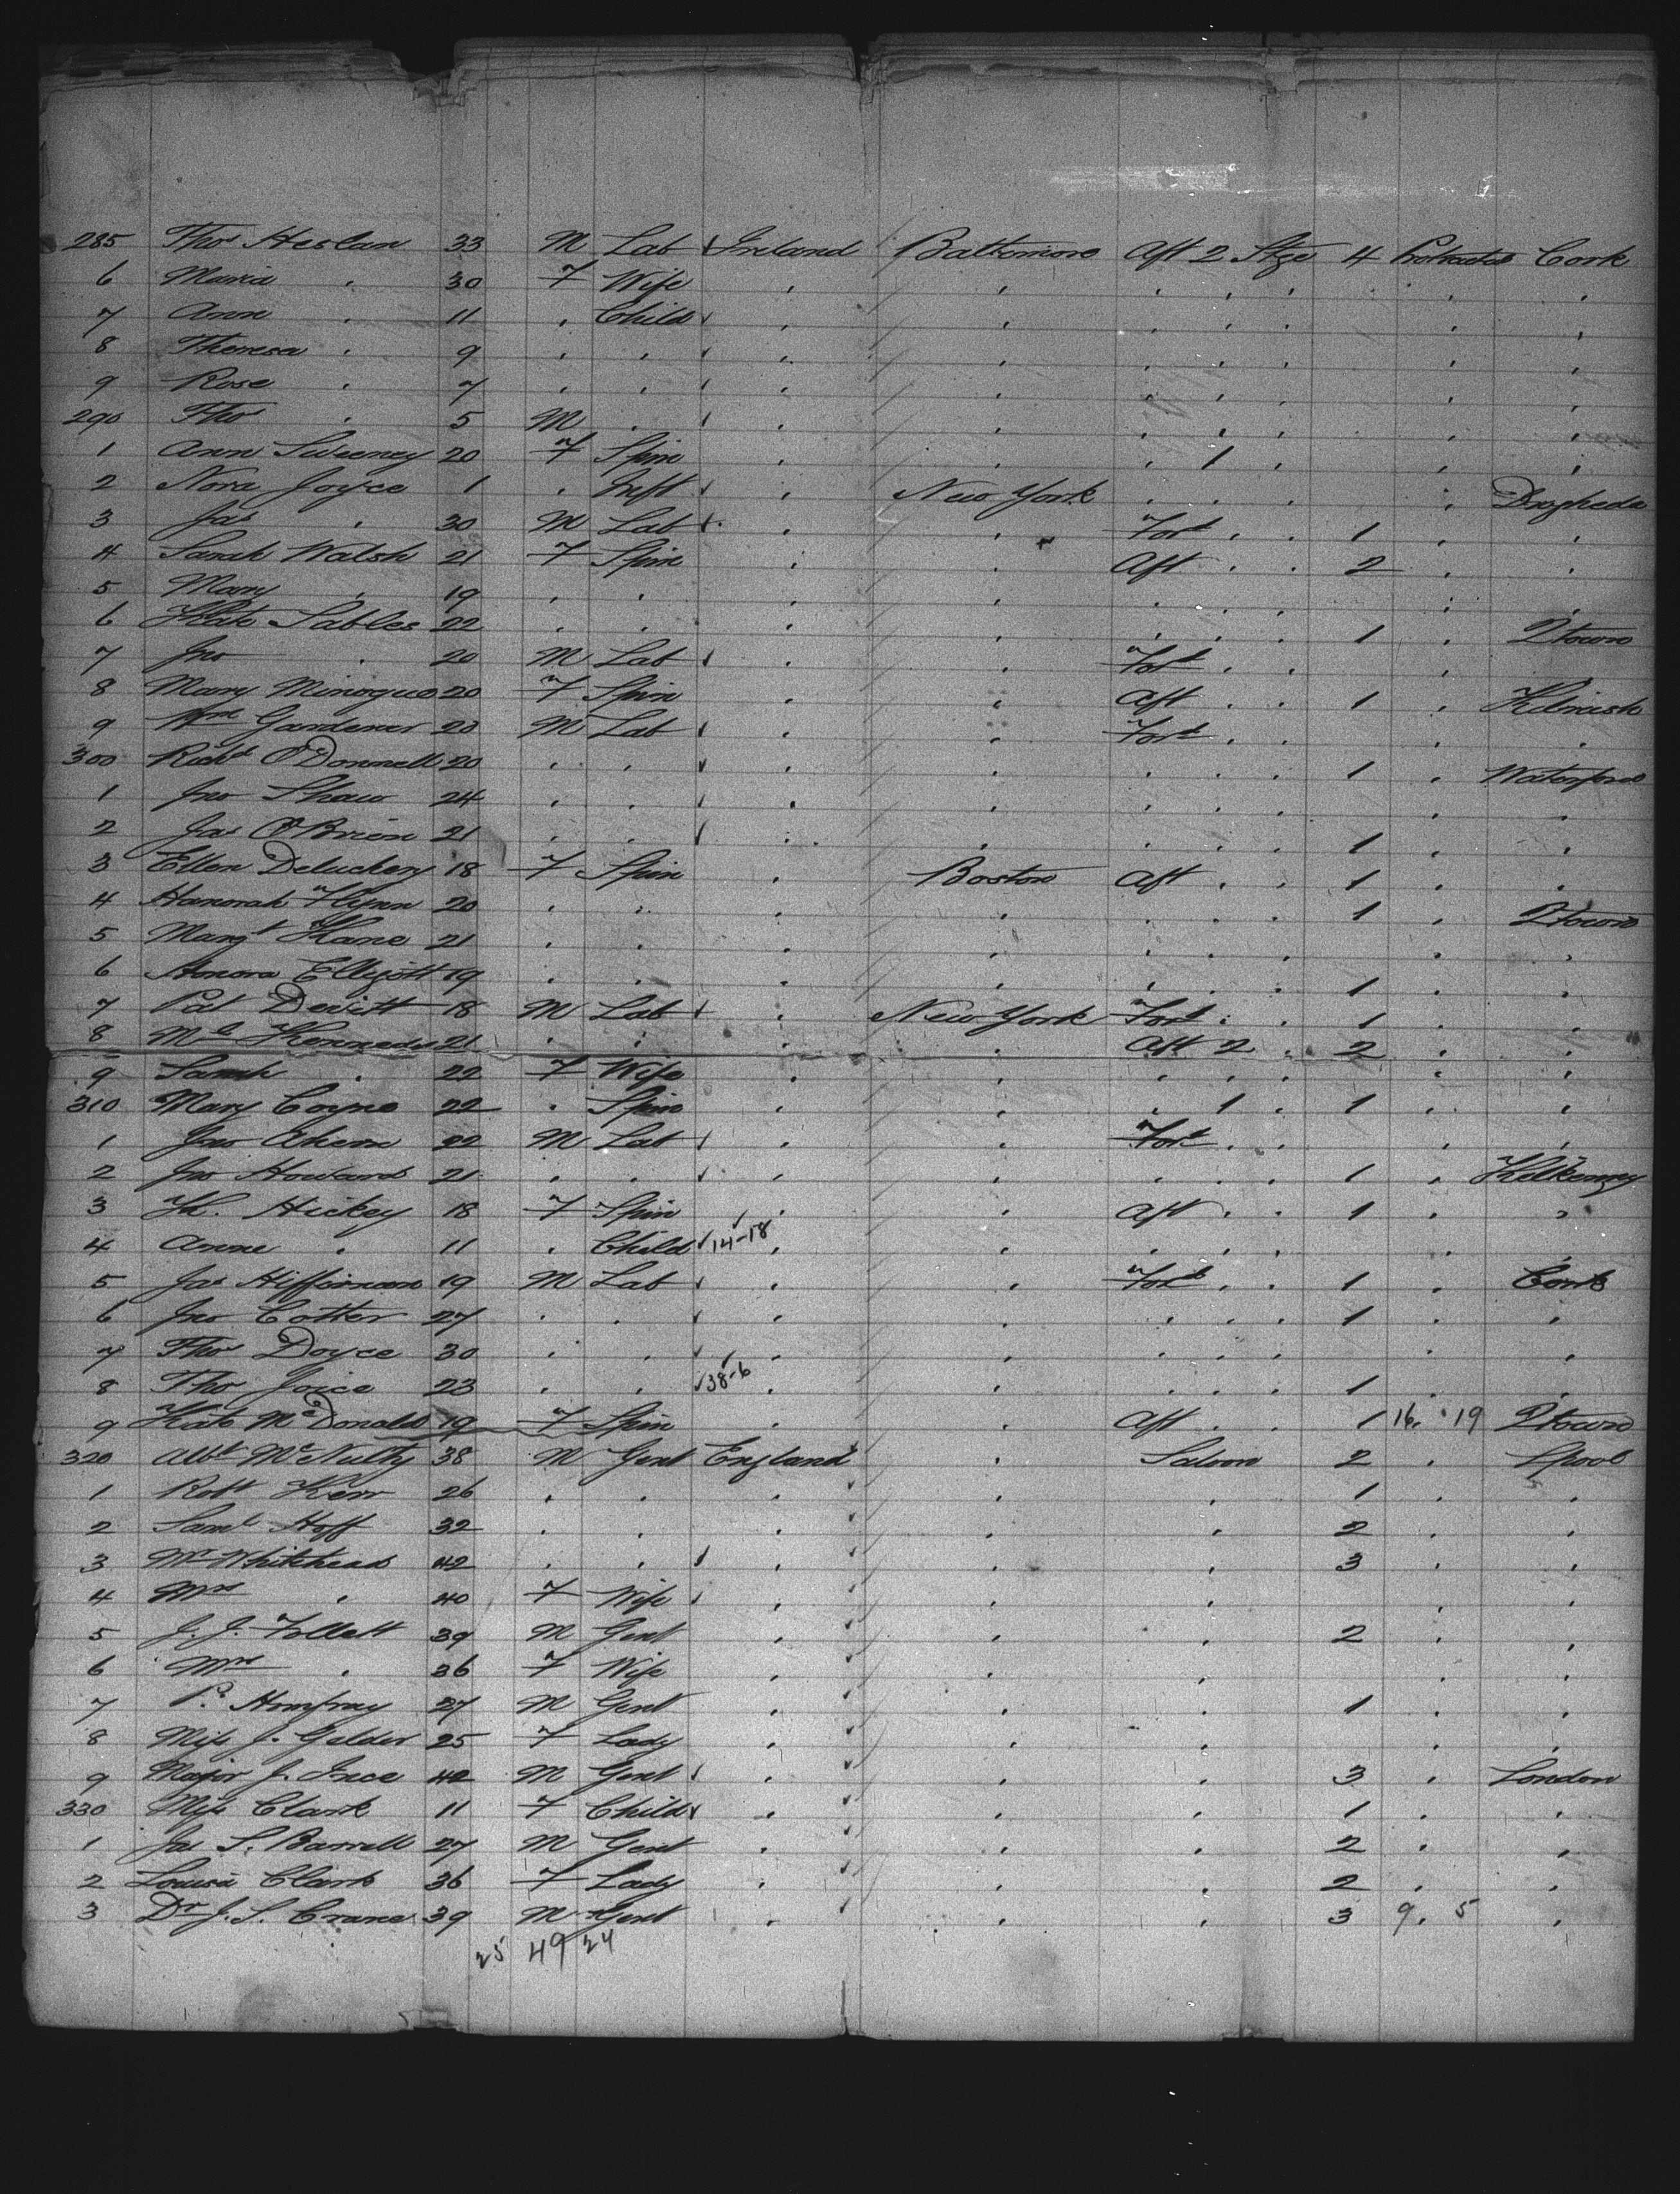 285 Thos Heslan 33 M Lab Ireland Baltimore Aft 2 Stge 4 Protracted Cork
6 Maria " 30 F Wife " " " " " " "
7 Ann " 11 " Child " " " " " " "
8 Theresa " 9 " " " " " " " " "
9 Rose " 7 " " " " " " " " "
290 Thos " 5 M " " " " " " " "
1 Ann Sweeney 20 F Spin " " " 1 " " "
2 Nora Joyce 1 " Inft " New York " " " " Drogheda
3 Jas " 30 M Lab " " Ford " " 1 " "
4 Sarah Walsh 21 F Spin " " Aft " " 2 " "
5 Mary " 19 " " " " " " " " "
6 Kate Sables 22 " " " " " " " 1 " Qtown
7 Jno " 20 M Lab " " Ford " " " "
8 Mary Minogue 20 F Spin " " Aft " " 1 " Kilrush
9 Wm Gardener 23 M Lab " " Ford " " " "
300 Richd O'Donnell 20 " " " " " " " 1 " Waterford
1 Jno Shaw 24 " " " " " " " " "
2 Jas O'Brien 21 " " " " " " " 1 " "
3 Ellen Deluchery 18 F Spin " Boston Aft " " 1 " "
4 Hanorah Flynn 20 " " " " " " " 1 " Qtown
5 Margt Kane 21 " " " " " " " " "
6 Honora Elligott 19 " " " " " " " 1 " "
7 Pat Devitt 18 M Lab " New York Ford " " 1 " "
8 Ml Kennedy 21 " " " " Aft 2 " 2 " "
9 Sarah " 22 F Wife " " " " " " "
310 Mary Coyne 22 " Spin " " " 1 " 1 " "
1 Jno Ahern 22 M Lab " " Ford " " " "
2 Jno Howard 21 " " " " " " " 1 " Kilkenny
3 K. Hickey 18 F Spin " " Aft " " 1 " "
4 Anne " 11 " Child 14-18 " " " " " " "
5 Jas Hiffernan 19 M Lab " " Ford " " 1 " Cork
6 Jno Cotter 27 " " " " " " " 1 " "
7 Thos Doyce 30 " " " " " " " " "
8 Thos Joice 23 " " 38-6 " " " " " 1 " "
9 Kate McDonald 19 F Spin " " Aft " " 1 16 " 19 Qtown
320 Albt McNulty 38 M Gent England " Saloon 2 " Lpool
1 Robt Kerr 26 " " " " " 1 " "
2 Saml Hoff 32 " " " " " 2 " "
3 Mr Whitehead 42 " " " " " 3 " "
4 Mrs " 40 F Wife " " " " "
5 J. J. Follett 39 M Gent " " " 2 " "
6 Mrs " 36 F Wife " " " " "
7 P. Homfray 27 M Gent " " " 1 " "
8 Miss J. Gelder 25 F Lady " " " " "
9 Major J. Ince 42 M Gent " " " 3 " London
330 Miss Clark 11 F Child " " " 1 " "
1 Jas S. Barrell 27 M Gent " " " 2 " "
2 Louisa Clark 36 F Lady " " " 2 " "
3 Dr J. S. Crane 39 M Gent " " " 3 9 " 5 "
25 49 24